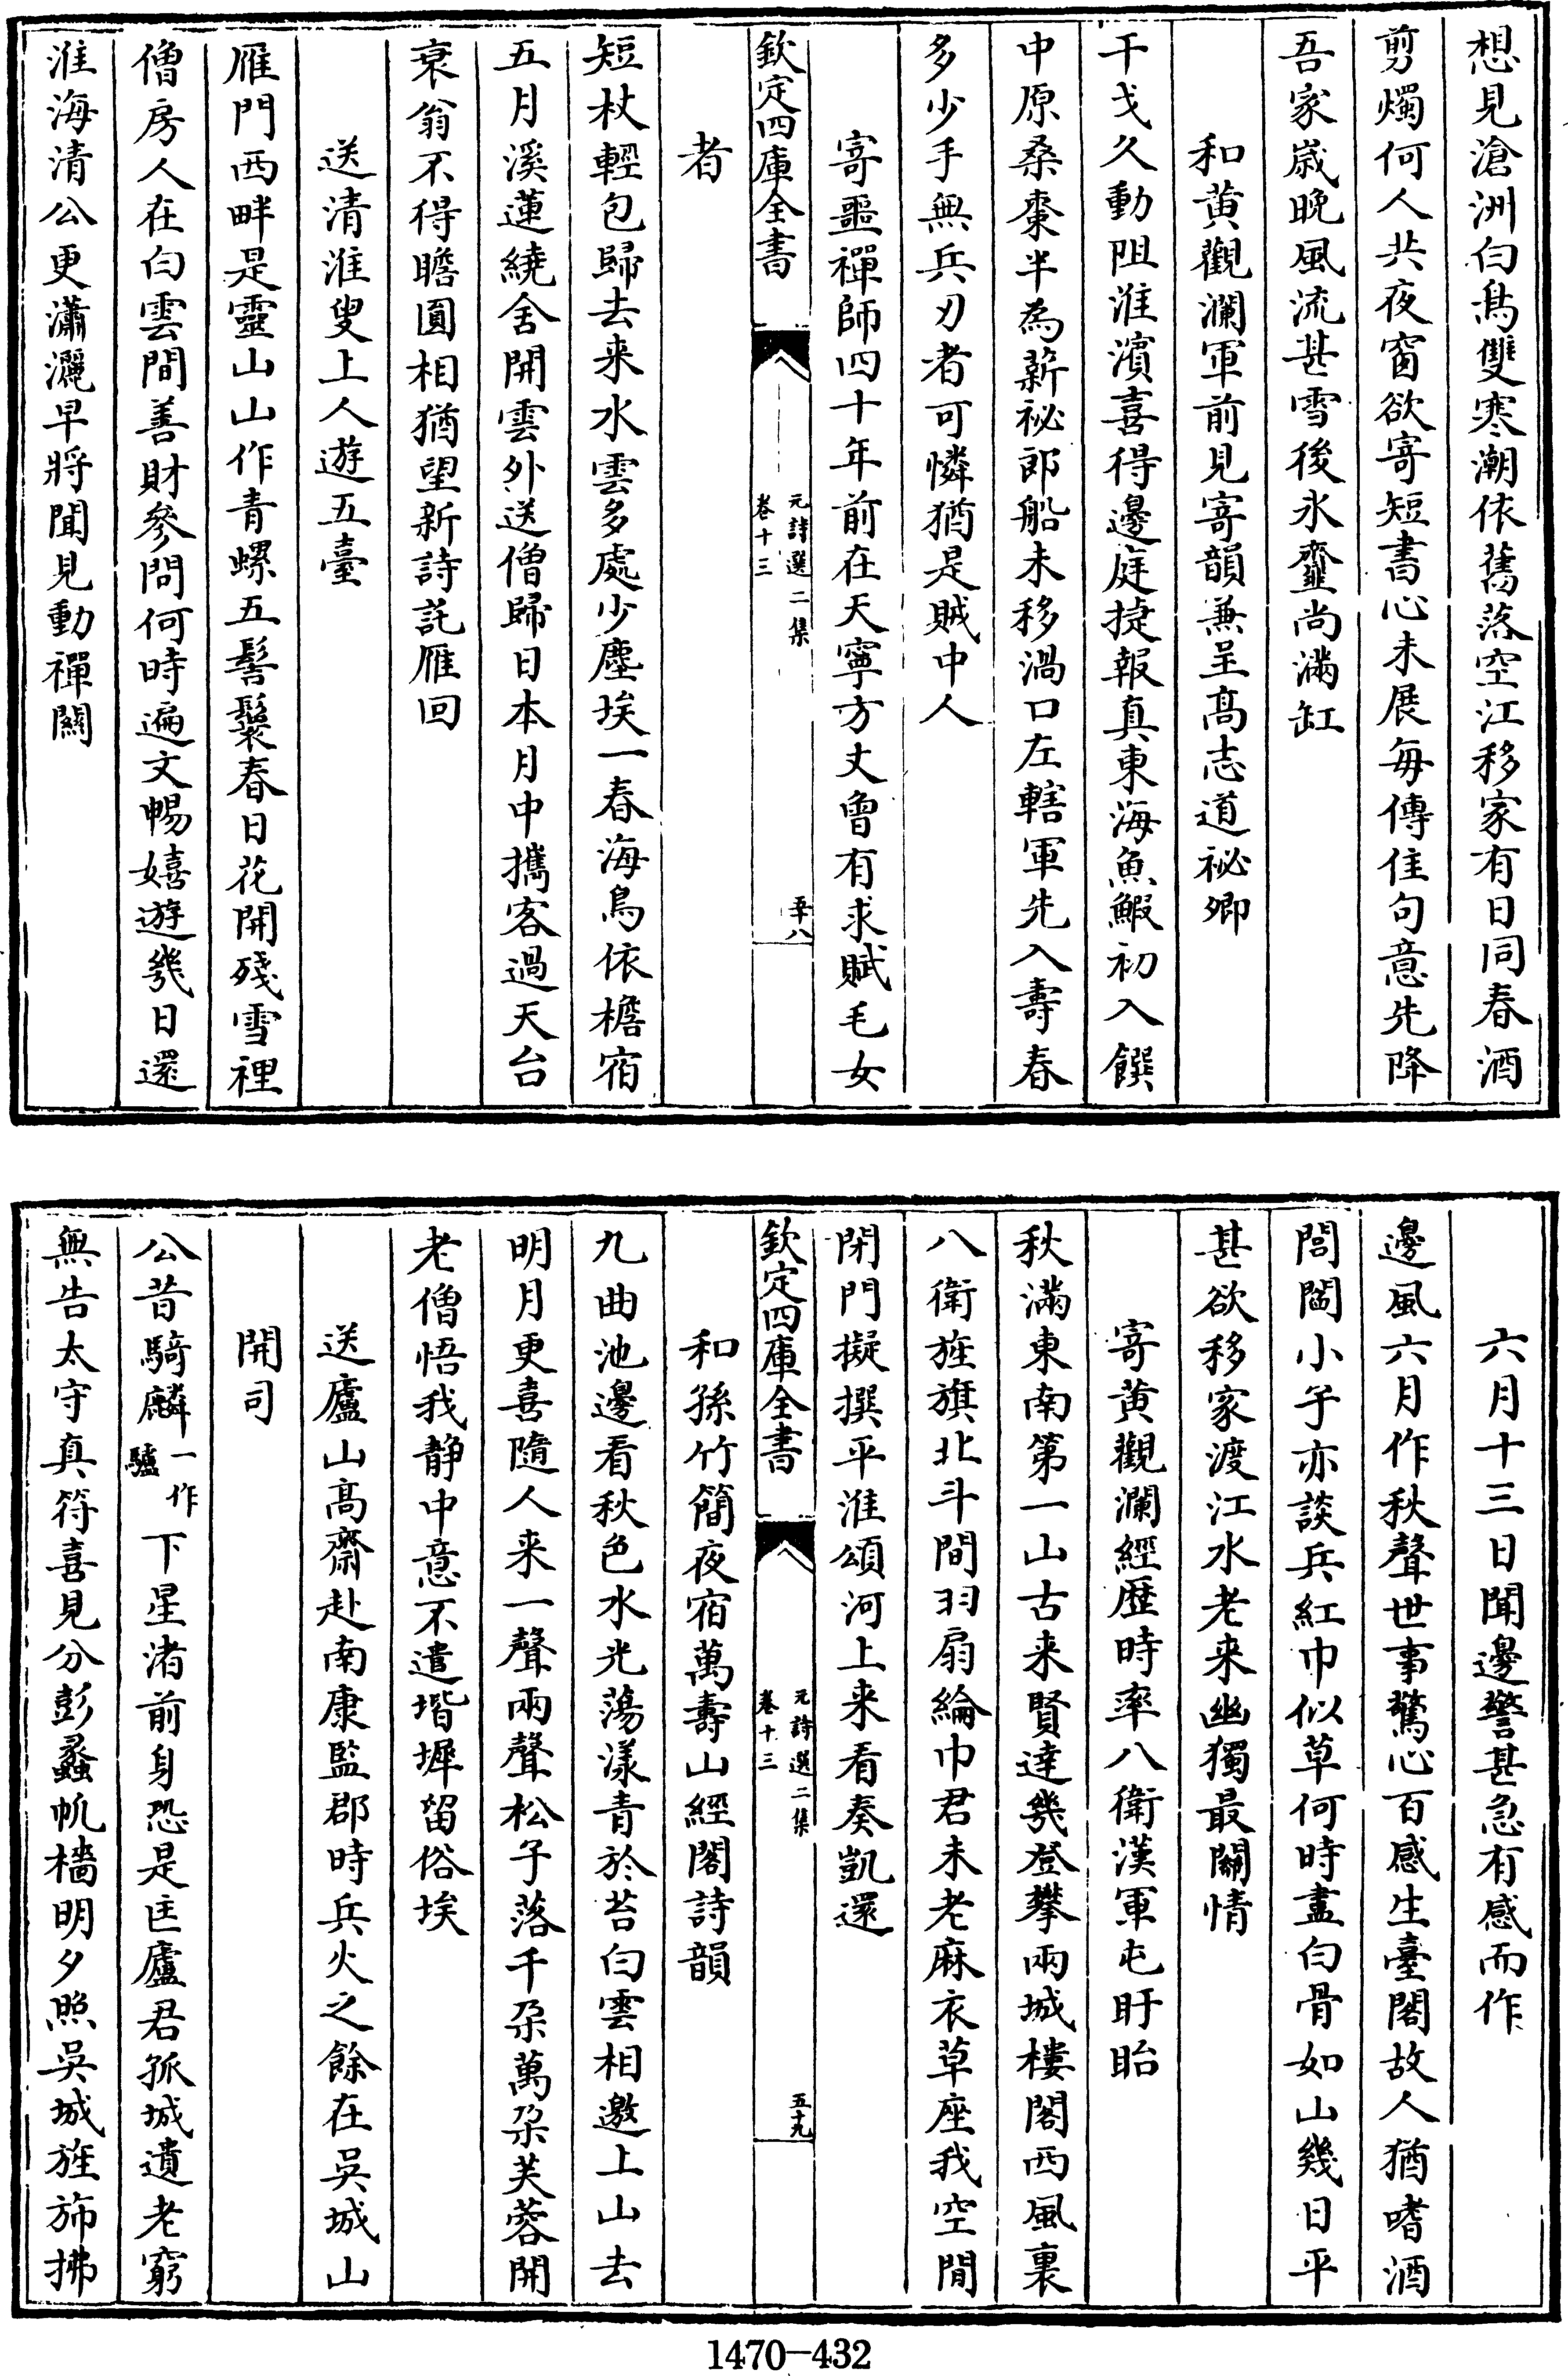 想見滄洲白鳥雙寒潮依舊落空江移家有日同春酒
剪燭何人共夜窗欲寄短書心未展每傳佳句意先降
吾家歲晚風流甚雪後氷虀尚滿缸
和黄觀瀾軍前見寄韻兼呈髙志道祕卿
干戈久動阻淮濱喜得邊庭捷報真東海魚鰕初入饌
中原桑棗半為薪祕郎船未移渦口左轄軍先入壽春
多少手無兵刃者可憐猶是賊中人
寄噩禪師四十年前在天寧方丈曾有求賦毛女
欽定四庫全書
元詩選二集
卷十三
五十八
者
短杖輕包歸去来水雲多處少塵埃一春海鳥依檐宿
五月溪蓮繞舍開雲外送僧歸日本月中攜客過天台
衰翁不得瞻圓相猶望新詩託雁回
送清淮叟上人遊五臺
雁門西畔是靈山山作青螺五髻鬟春日花開殘雪裡
僧房人在白雲間善財參問何時遍文暢嬉遊幾日還
淮海清公更瀟灑早將聞見動禪關
六月十三日聞邊警甚急有感而作
邊風六月作秋聲世事驚心百感生臺閣故人猶嗜酒
閭閻小子亦談兵紅巾似草何時盡白骨如山幾日平
甚欲移家渡江水老来幽獨最關情
寄黄觀瀾經歷時率八衛漢軍屯盱眙
秋滿東南第一山古来賢達幾登攀兩城樓閣西風裏
八衛旌旗北斗間羽扇綸巾君未老麻衣草座我空閒
閉門擬撰平淮頌河上来看奏凱還
欽定四庫全書
元詩選二集
卷十三
五十九
和孫竹簡夜宿萬壽山經閣詩韻
九曲池邊看秋色水光蕩漾青於苔白雲相邀上山去
明月更喜隨人来一聲兩聲松子落千朶萬朶芙蓉開
老僧悟我静中意不遣堦墀留俗埃
送廬山髙齋赴南康監郡時兵火之餘在吳城山
開司
公昔騎麟一作驢下星渚前身恐是匡廬君孤城遺老窮
無告太守真符喜見分彭蠡帆檣明夕照吳城旌斾拂
1470—432